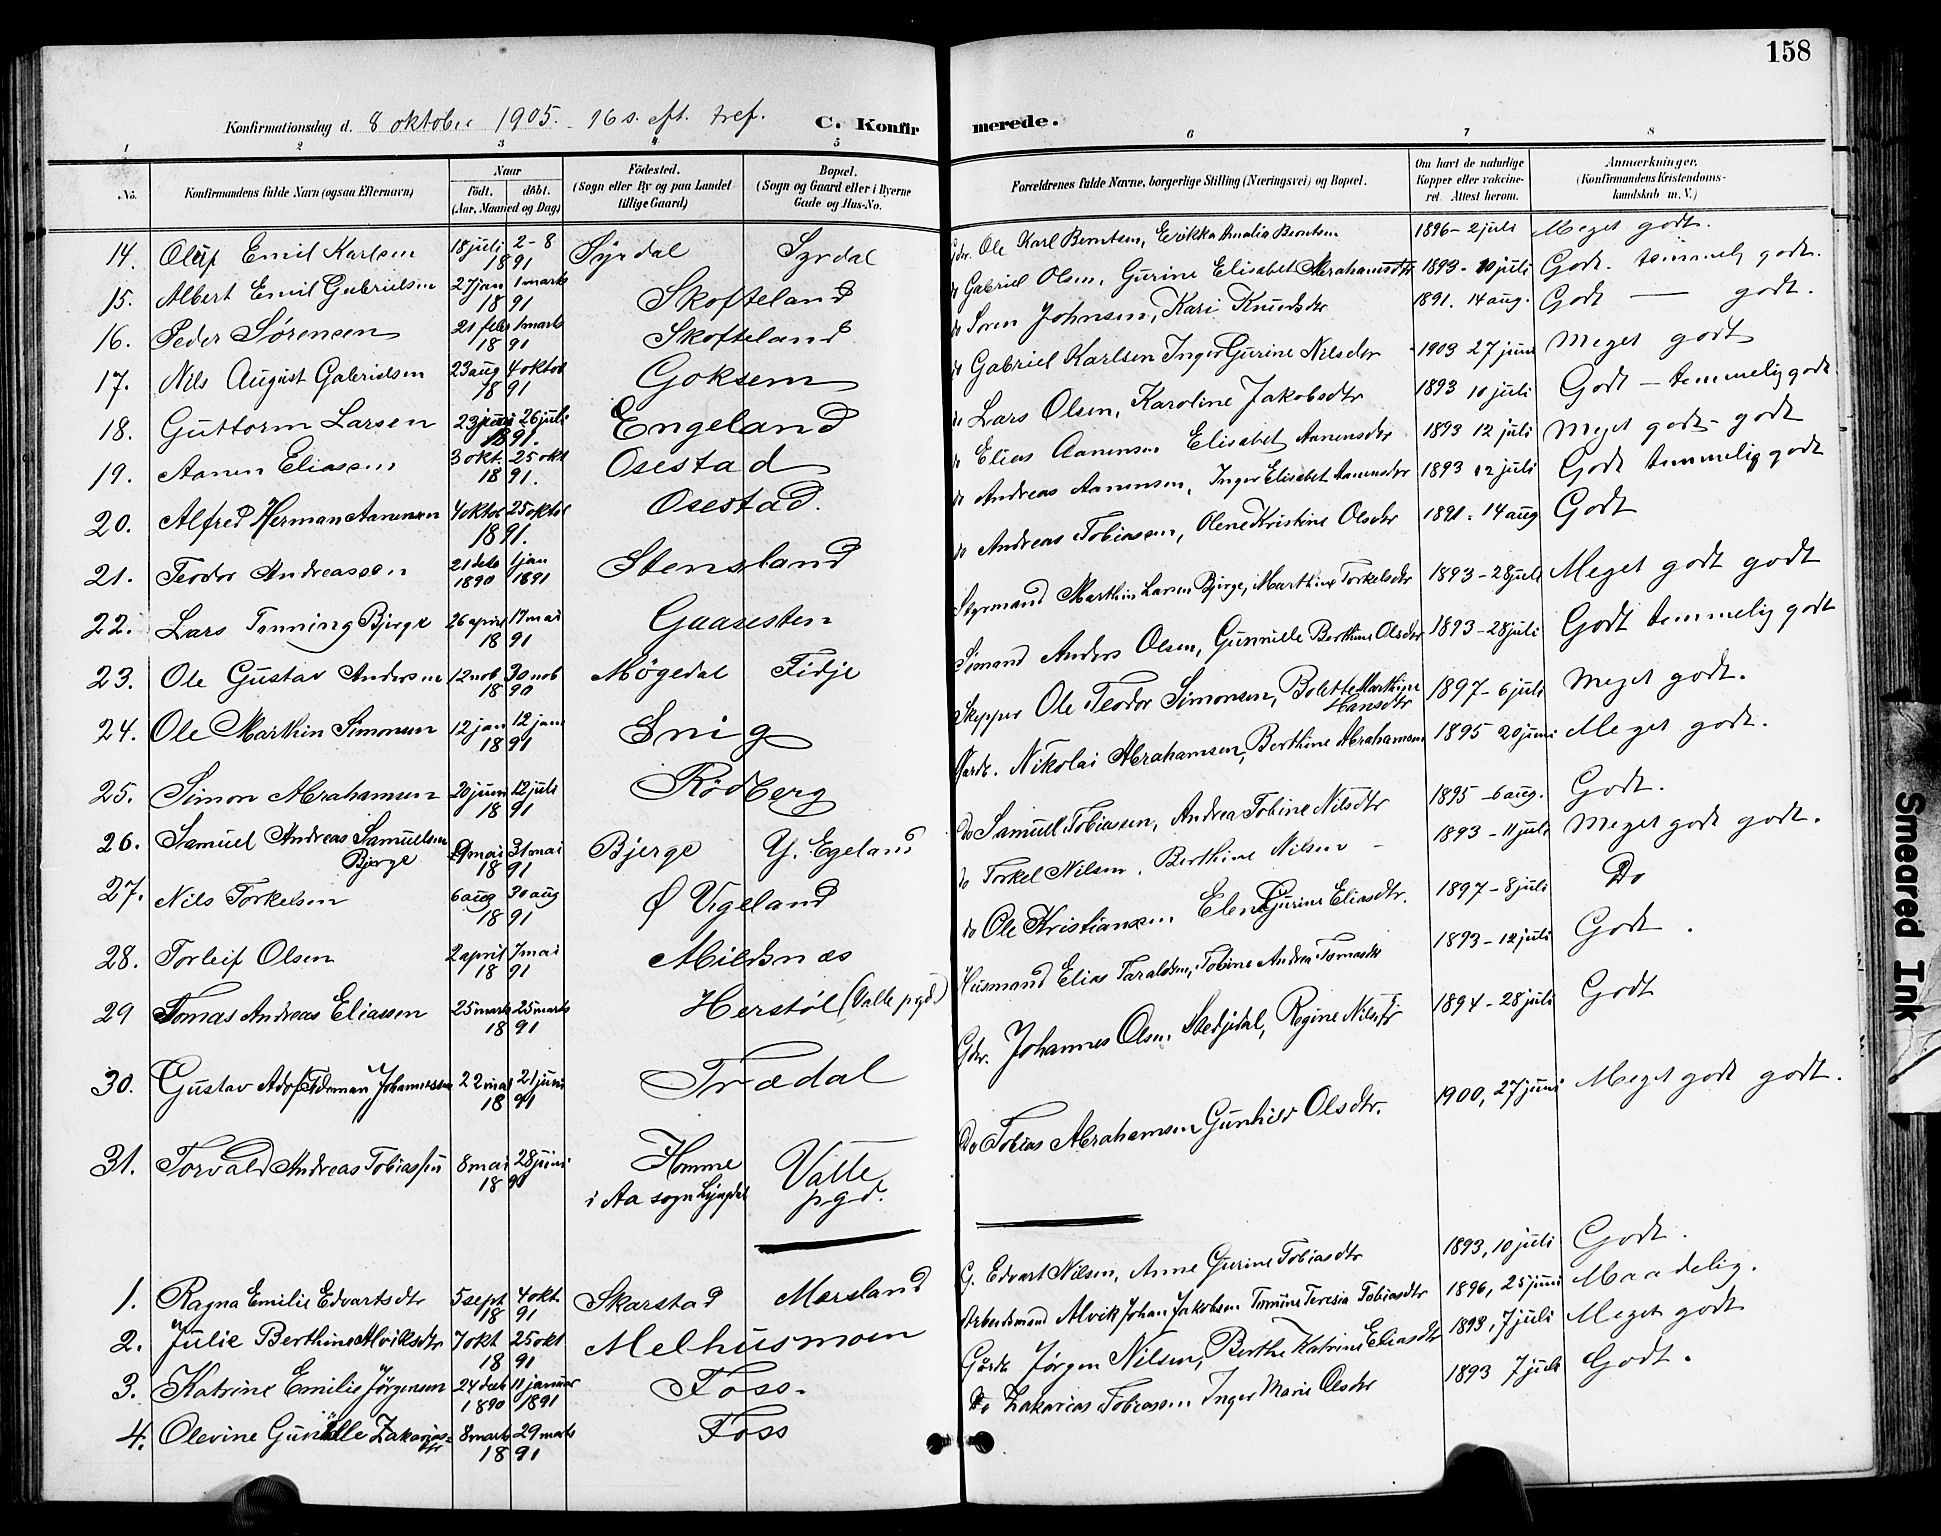 158
Konfirmationsdag d. 8 oktober 1905. 16 s. eft. tref. C. Konfir merede.
1 2 3 4 5 6 7 8
No. Konfirmandens fulde Navn (ogsaa Efternavn) Naar Födt. döbt. (Aar, Maaned og Dag) Födested. (Sogn eller By og paa Landet tillige Gaard) Bopæl. (Sogn og Gaard eller i Byerne Gade og Hus-No. Forældrenes fulde Navne, borgerlige Stilling (Næringsvei) og Bopæl. Om havt de naturlige Kopper eller vakcineret. Attest herom. Anmærkninger. (Konfirmandens Kristendomskundskab m. V.)
14. Emil Karlsen 18 juli 2-8 1891 Syrdal Syrdal Gdbr. Ole Karl Berntsen, Erikka Amalia Berntsen 1896 - 2 juli Meget godt.
15. Albert Emil Gabrielsen 27 jan 1 marts 1891 Skofteland do Gabriel Olsen, Gurine Elisabet Abrahamsdtr 1893 - 10 juli Godt. temmelig godt.
16. Peder Sörensen 21 febr 1 marts 1891 Skofteland do Soren Johnsen, Kari Knudsdtr 1891. 14 aug. Godt — godt.
17. Nils August Gabrielsen 23 aug 4 oktob 1891 Goksem do Gabriel Karlsen Inger Gurine Nilsdtr 1903 27 juni Meget godt
18. Guttorm Larsen 23 juni 26 juli 1891. Engeland do Lars Olsen, Karoline Jakobsdtr 1893 10 juli Godt - temmelig godt
19. Aanen Eliassen 3 okt. 25 okt 1891. Osestad do Elias Aanensen Elisabet Aanensdtr 1893 12 juli Meget godt - godt
20. Alfred Herman Aanensen 4 oktob 25 oktob 1891. Osestad. do Andreas Aanensen, Inger Elisabet Aanensdtr 1893 12 juli Godt temmelig godt
21. Teodor Andreassen 21 deb 1 jan 1890 1891 Stensland do Andreas Tobiassen, Olene Kristine Olsdtr 1891 - 14 aug Godt
22. Lars Tonning Bjerge 26 april 17 mai 1891 Gaasesten Styrmand Marthin Larsen Bjerge, Marthine Torkelsdtr 1893 - 28 juli Meget godt godt
23. Ole Gustav Andersen 12 nob 30 nob 1890 Mögedal Fidje Sömand Anders Olsen, Gunnille Berthine Olsdtr 1893 - 28 juli Godt temmelig godt
24. Ole Marthin Simonsen 12 jan 12 jan 1891 Snig Skipper Ole Teodor Simonsen, Bolette Marthine Hansdtr 1897 - 6 juli Meget godt.
25. Simon Abrahamsen 20 juni 12 juli 1891 Rödberg Gardb. Nikolai Abrahamsen, Berthine Abrahamsen 1895 20 juni Meget godt.
26. Samuel Andreas Samuelsen Bjerge 9 mai 31 mai 1891 Bjerge Y. Egeland Do Samuel Tobiassen, Andrea Tobine Nilsdtr 1895 - 6 aug. Godt.
27. Nils Torkelsen 6 aug 30 aug 1891 Ø Vigeland do Torkel Nilsen, Berthine Nilsen - 1893 - 11 juli Meget godt godt.
28. Torleif Olsen 2 april 7 mai 1891 Mildsnæs do Ole Kristiansen Elen Gurine Eliasdtr. 1897 - 8 juli Do
29 Tomas Andreas Eliassen 25 marts 25 marts 1891 Herstöl (Valle pgd.) Husmand Elias Taraldsen, Tobine Andrea Tomasdtr 1893 - 12 juli Godt.
30. Gustav Adolf Johannessen 22 mai 21 juni 1891 Trædal Gdbr. Johannes Olsen, Regine Nilsdtr 1894 - 28 juli Godt
31. Torvald Andreas Tobiassen 8 mai 28 juni 1891 Homme i Aa sogn Lyngdal Valle pgd. Do Tobias Abrahamsen Gunhild Olsdtr. 1900, 27 juni Meget godt godt.
1. Ragna Emilie Edvartsdtr 5 sept 4 okt 1891 Skarstad Mørsland G. Edvart Nilsen, Anne Gurine Tobiasdtr 1893, 10 juli Godt.
2. Julie Berthine Alviksdtr 7 okt 25 okt 1891 Melhusmoen Arbeidsmand Alvik Johan Jakobsen Tomine Teresia Tobiasdtr 1896, 25 juni Maadelig.
3. Katrine Emilie Jörgensen 24 deb 11 januar 1890 1891 Foss. Gårdb Jørgen Nilsen, Berthe Katrine Eliasdtr 1893, 7 juli Meget godt
4. Olevine Gunille Zakariasdtr 8 marts 29 marts 1891 Foss Do Zakarias Tobiassen Inger Marie Olsdtr 1893 7 juli Godt.
Smeared Ink